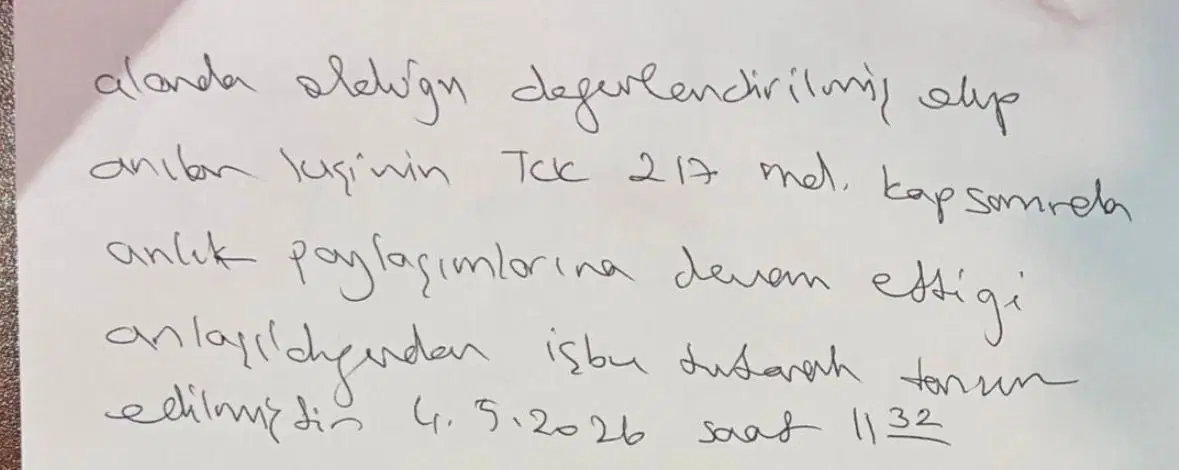 alanda olduğu değerlendirilmiş olup
anılan kişinin TCK 217 mad. kapsamında
anlık paylaşımlarına devam ettiği
anlaşıldığından işbu tutanak tanzim
edilmiştir 4.5.2026 saat 11 32